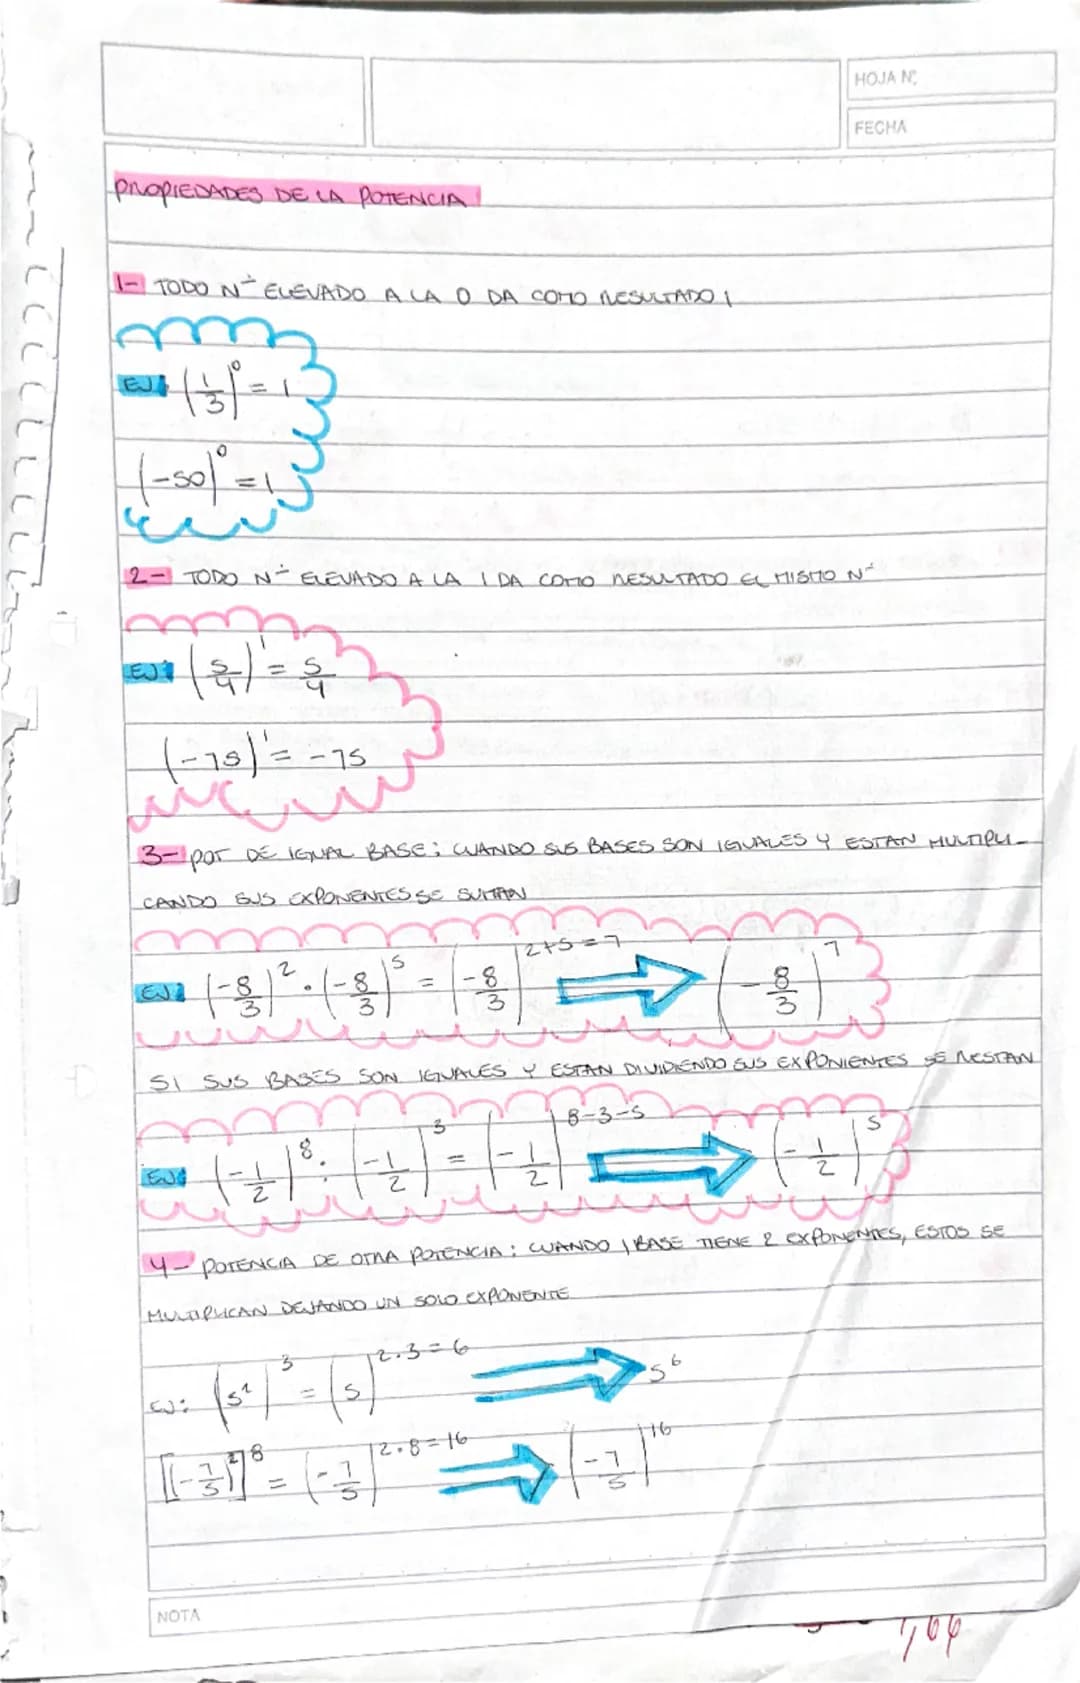 HOJA N°
FECHA
PROPIEDADES DE LA POTENCIA
1- TODO N° ELEVADO A LA 0 DA COMO RESULTADO 1
EJ: (1/3)⁰ = 1
(-50)⁰ = 1
2- TODO N° ELEVADO A LA 1 DA COMO RESULTADO EL MISMO N°
EJ: (5/4)¹ = 5/4
(-75)¹ = -75
3- POT DE IGUAL BASE: CUANDO SUS BASES SON IGUALES Y ESTAN MULTIPLI-
CANDO SUS EXPONENTES SE SUMAN
EJ: (-8/3)² · (-8/3)⁵ = (-8/3)^2+5=7 ⇒ (-8/3)⁷
SI SUS BASES SON IGUALES Y ESTAN DIVIDIENDO SUS EXPONIENTES SE RESTAN
EJ: (-1/2)⁸ : (-1/2)³ = (-1/2)^8-3-5 ⇒ (-1/2)⁵
4- POTENCIA DE OTRA POTENCIA: CUANDO 1 BASE TIENE 2 EXPONENTES, ESTOS SE
MULTIPLICAN DEJANDO UN SOLO EXPONENTE
EJ: (5²)³ = (5)^2·3=6 ⇒ 5⁶
[(-7/5)²]⁸ = (-7/5)^2·8=16 ⇒ (-7/5)¹⁶
NOTA